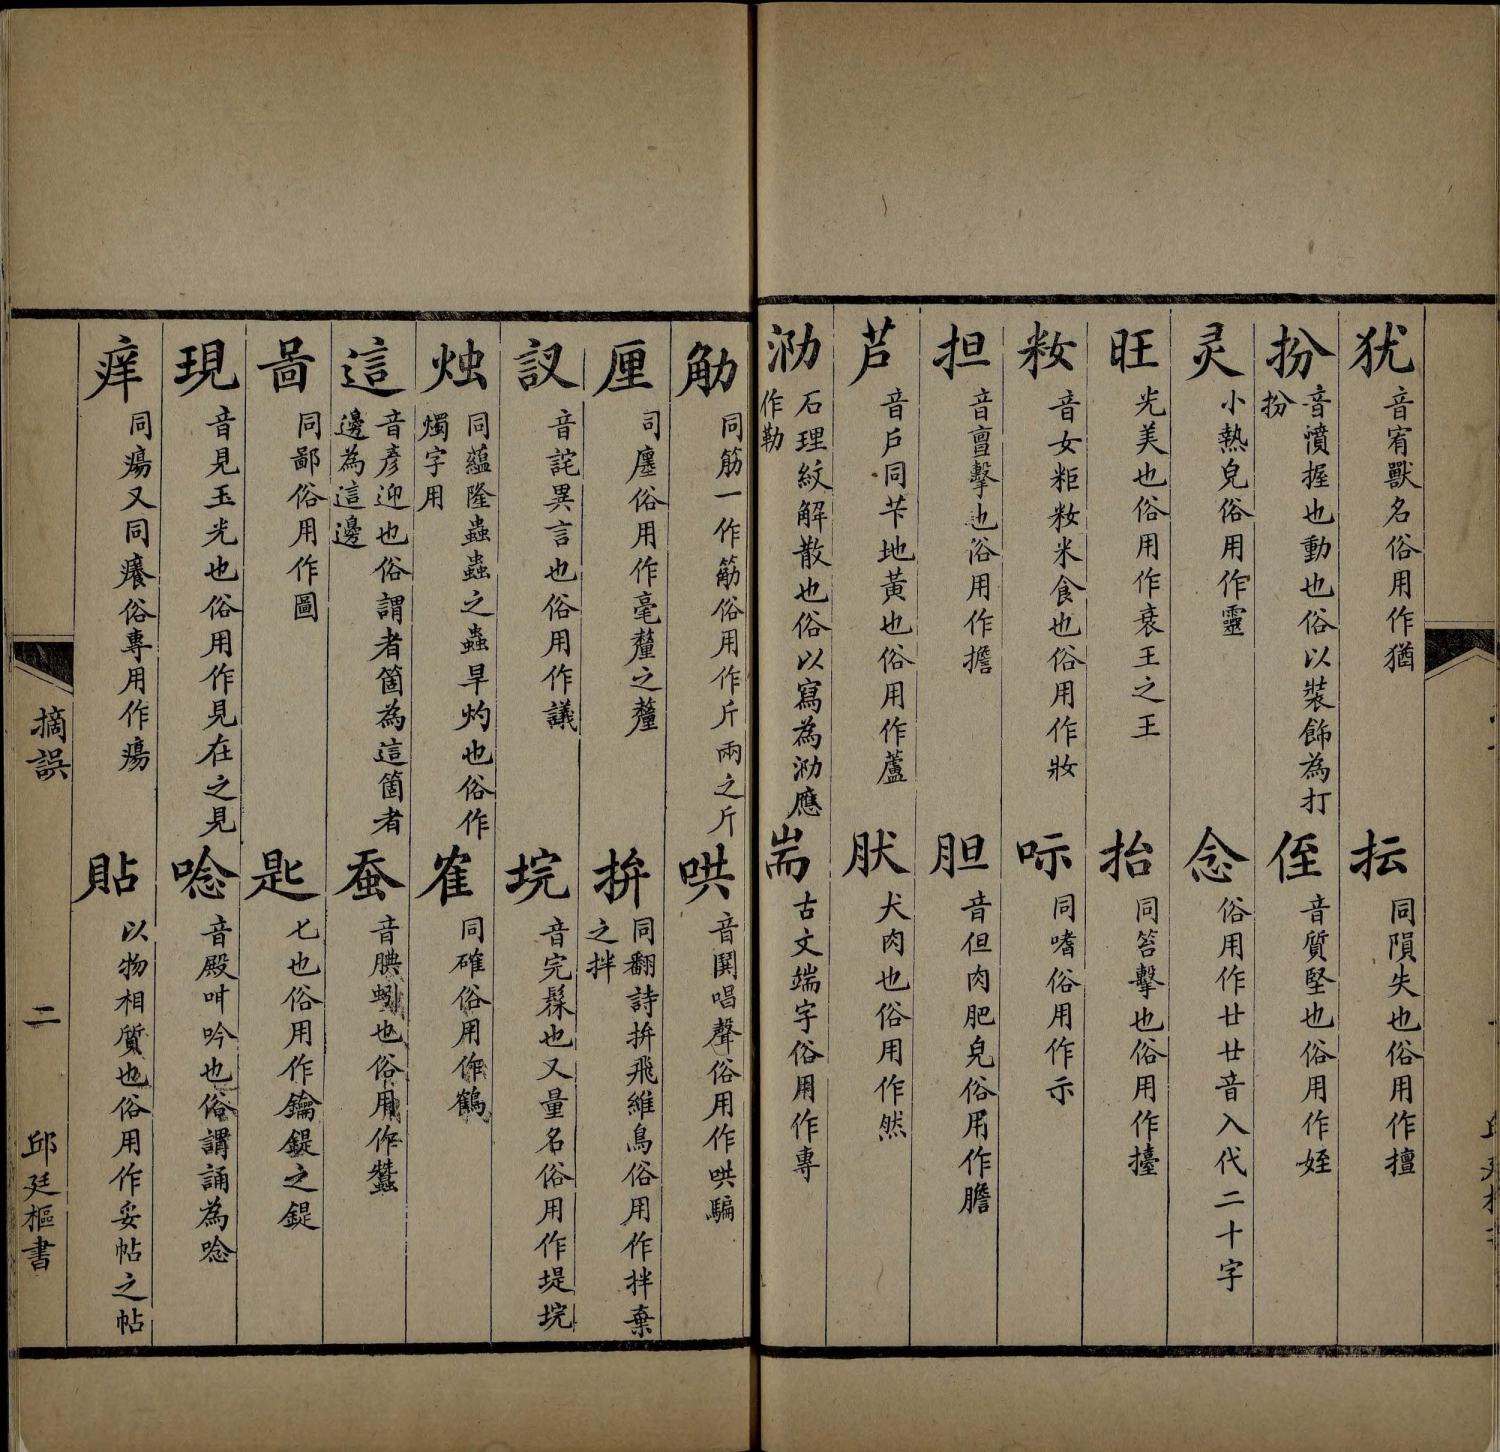 犹 音宥獸名俗用作猶
抎 同隕失也俗用作擅
扮 音憤握也動也俗以裝飾為打扮
侄 音質堅也俗用作姪
灵 小熱皃俗用作靈
念 俗用作廿廿音入代二十字
旺 光美也俗用作衰王之王
抬 同笞擊也俗用作擡
籹 音女粔籹米食也俗用作妝
呩 同嗜俗用作示
担 音亶擊也俗用作擔
胆 音但肉肥皃俗用作膽
芦 音戶同芐地黃也俗用作蘆
肰 犬肉也俗用作然
泐 石理紋解散也俗以寫為泐應作勒
耑 古文端字俗用作專
觔 同筋一作筋俗用作斤兩之斤
哄 音鬨唱聲俗用作哄騙
厘 司廛俗用作毫釐之釐
拚 同翻詩拚飛維鳥俗用作拌棄之拌
訍 音詫異言也俗用作議
垸 音完髹也又量名俗用作堤垸
烛 同蘊隆蟲蟲之蟲旱灼也俗作燭字用
寉 同確俗用作鶴
這 音彥迎也俗謂者箇為這箇者邊為這邊
蚕 音腆蚓也俗用作蠶
啚 同鄙俗用作圖
匙 匕也俗用作鑰鍉之鍉
現 音見玉光也俗用作見在之見
唸 音殿呻吟也俗謂誦為唸
痒 同瘍又同癢俗專用作瘍
貼 以物相質也俗用作妥帖之帖
摘誤
二
邱廷樞書